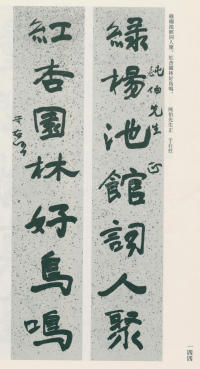 綠楊池館詞人聚，紅杏園林好鳥鳴。 純伯先生正 于右任
綠楊池館詞人聚
純伯先生正
紅杏園林好鳥鳴
于右任
一四四